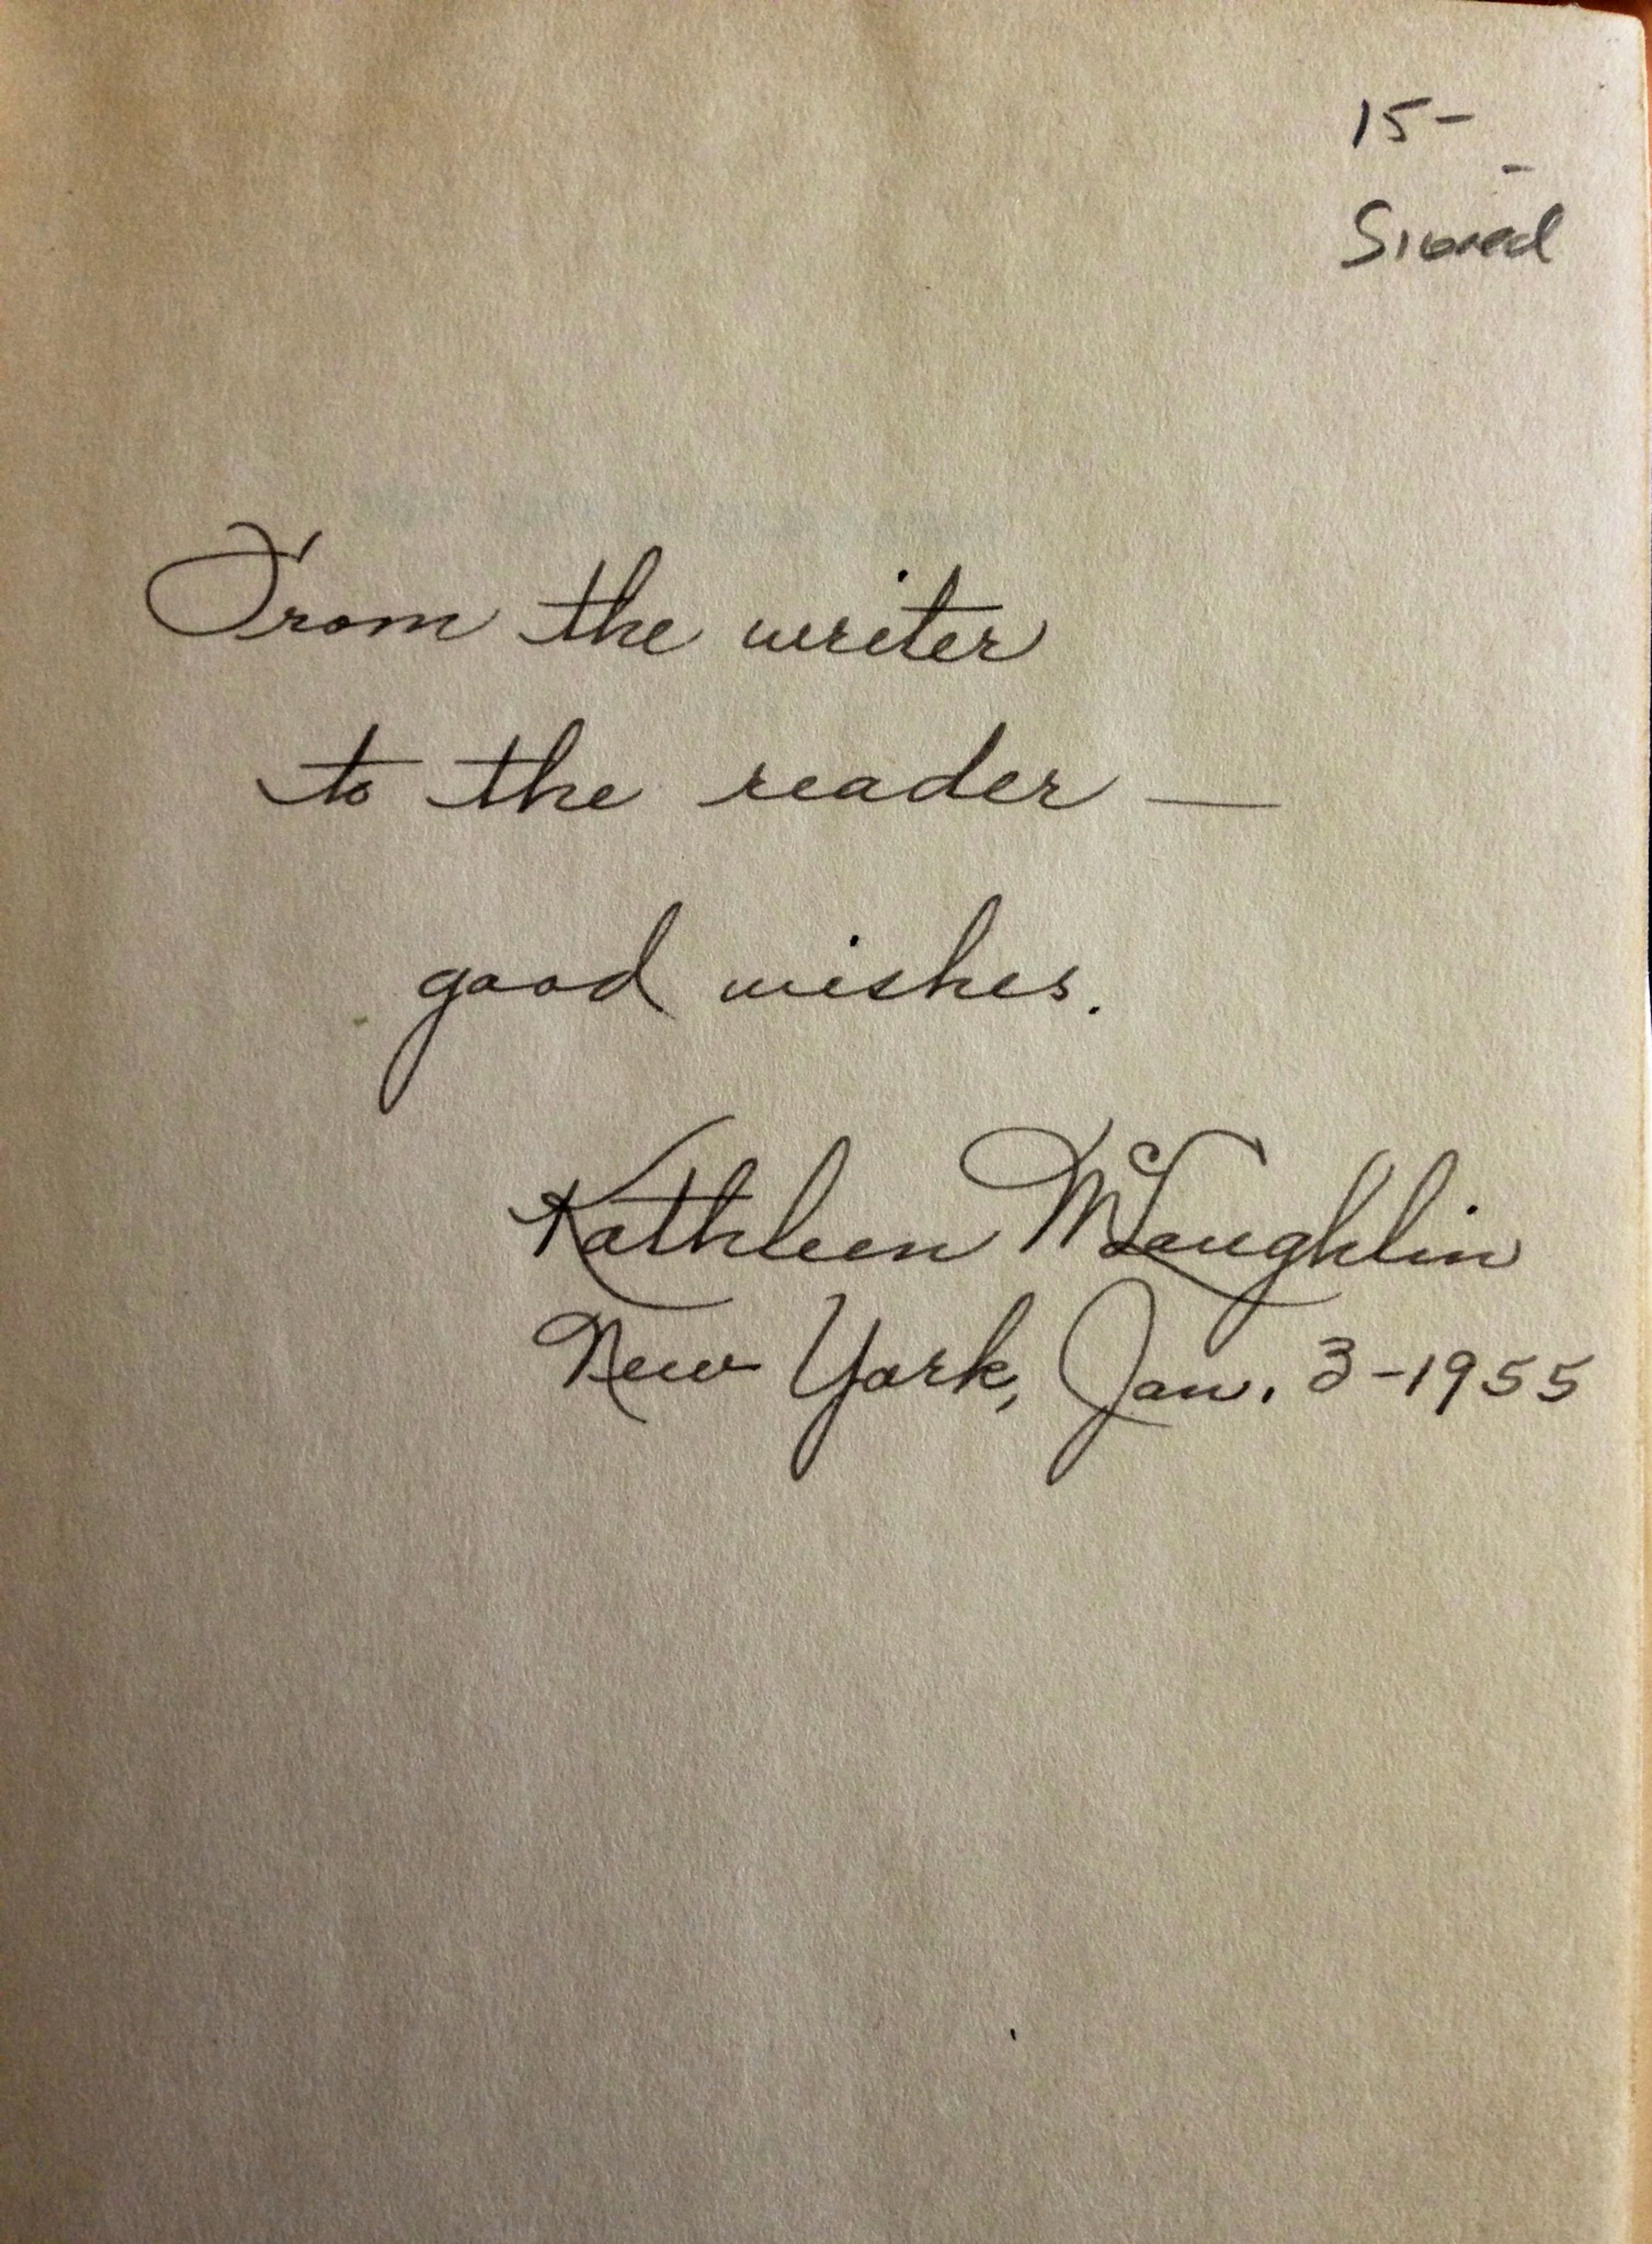 15-
Signed
From the writer
to the reader —
good wishes.
Kathleen McLaughlin
New York, Jan. 3-1955